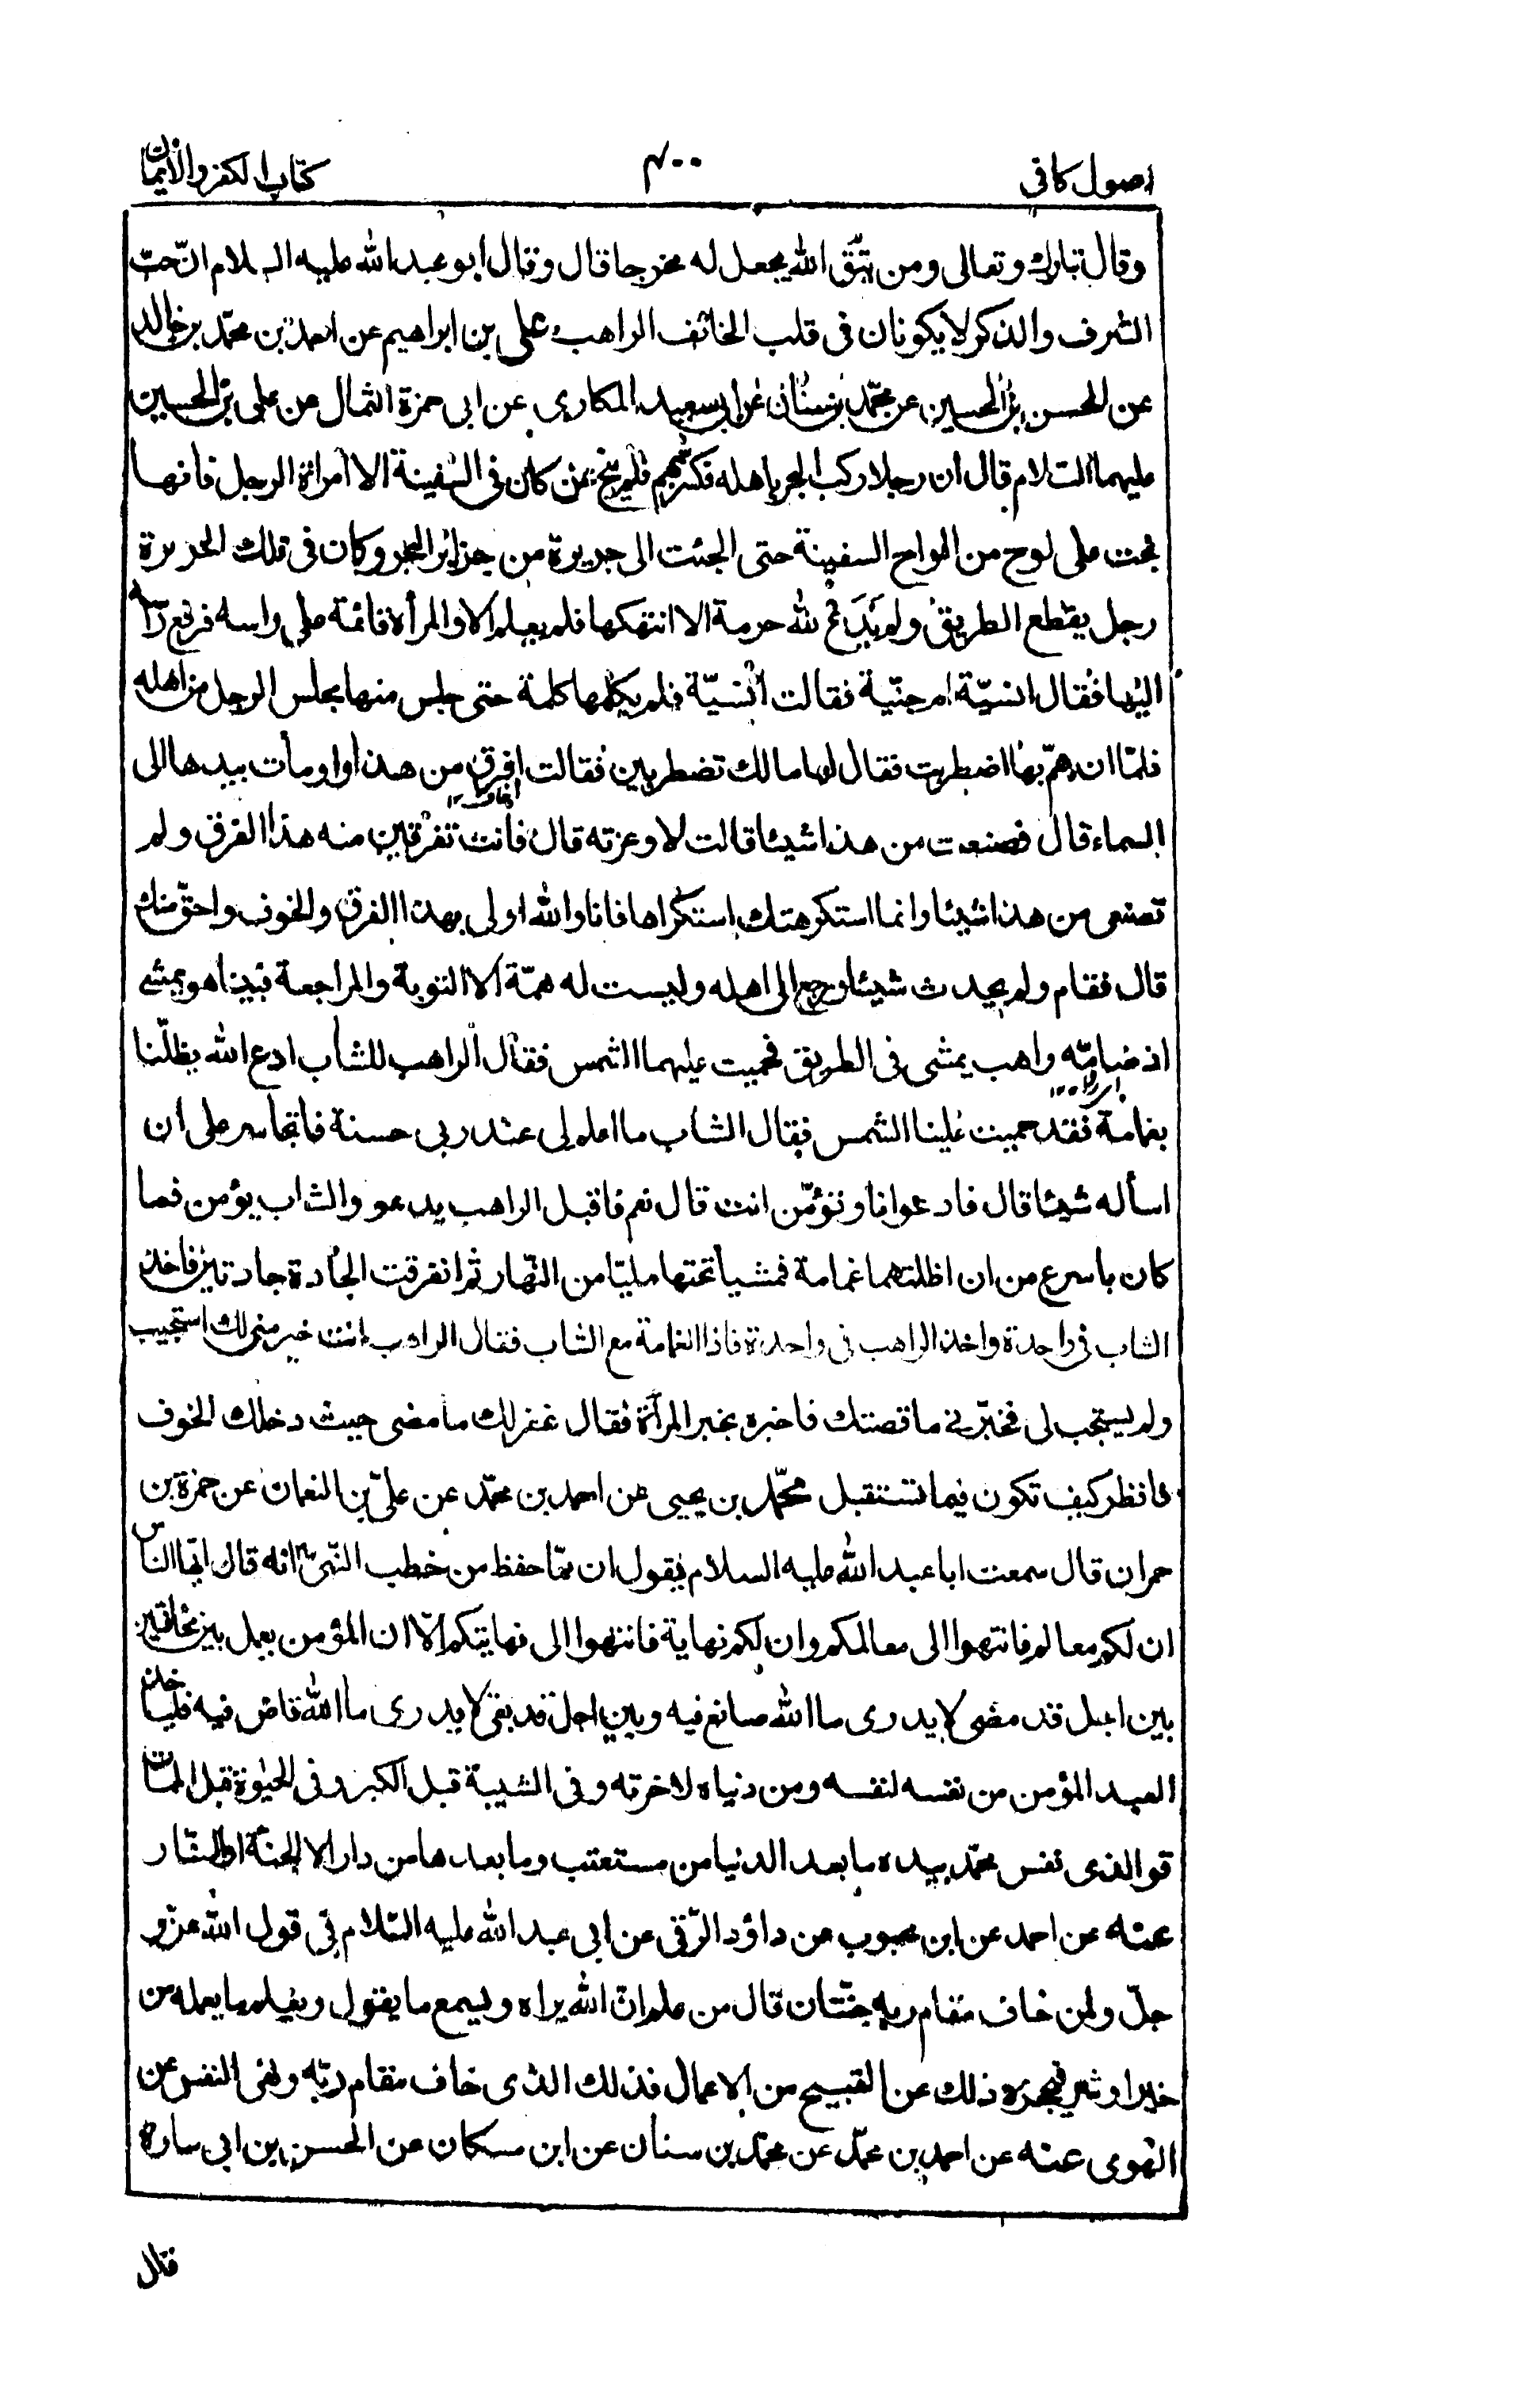 اصول کافی ۴۰۰ کتاب الکفر والایمان
وقال تبارك وتعالى ومن يتّق الله يجعل له مخرجا قال وقال ابو عبد الله عليه السلام انّ حبّ
الشرف والذكر لا يكونان فى قلب الخائف الراهب على بن ابراهيم عن احمد بن محمّد بن خالد
عن الحسن بن الحسين عن محمّد بن سنان عن ابى سعيد المكارى عن ابى حمزة الثمالى عن على بن الحسين
عليهما السلام قال ان رجلا ركب البحر باهله فكسر بهم فلم ينج ممن كان فى السفينة الا امراة الرجل فانها
نجت على لوح من الواح السفينة حتى الجئت الى جزيرة من جزائر البحر وكان فى تلك الجزيرة
رجل يقطع الطريق ولم يدع لله حرمة الا انتهكها فلم يعلم الا والمرأة قائمة على راسه فرفع راسه
اليها فقال انسيّة ام جنّية فقالت انسيّة فلم يكلمها كلمة حتى جلس منها مجلس الرجل من اهله
فلمّا ان همّ بها اضطربت فقال لها مالك تضطربين فقالت افرق من هذا واومأت بيدها الى
اخاف ۱۲
السماء قال فصنعت من هذا شيئا قالت لا وعزته قال فانت تفرقين منه هذا الفرق ولم
تصنعى من هذا شيئا وانما استكرهتك استكراها فانا والله اولى بهذا الفرق والخوف واحقّ منك
قال فقام ولم يحدث شيئا ورجع الى اهله وليست له همّة الا التوبة والمراجعة فبينا هو يمشى
اذ صادفه راهب يمشى فى الطريق فحميت عليهما الشمس فقال الراهب للشاب ادع الله يظلّنا
بغمامة فقد حميت علينا الشمس فقال الشاب ما اعلم لى عند ربى حسنة فاتجاسر على ان
اسأله شيئا قال فادعوا انا وتؤمّن انت قال نعم فاقبل الراهب يدعو والشاب يؤمن فما
كان باسرع من ان اظلتهما غمامة فمشيا تحتها مليّا من النّهار ثم انفرقت الجادة جادتين فاخذ
الشاب فى واحدة واخذ الراهب فى واحدة فاذا الغمامة مع الشاب فقال الراهب انت خير منى لك استجيب
ولم يستجب لى فخبّرنى ما قصتك فاخبره بخبر المرأة فقال غفر لك ما مضى حيث دخلك الخوف
فانظر كيف تكون فيما تستقبل محمّد بن يحيى عن احمد بن محمّد عن علىّ بن النعمان عن حمزة بن
حمران قال سمعت ابا عبد الله عليه السلام يقول ان ممّا حفظ من خطب النّبىّ ص انه قال ايّها الناس
ان لكم معالم فانتهوا الى معالمكم وان لكم نهاية فانتهوا الى نهايتكم الّا ان المؤمن يعمل بين مخافتين
بين اجل قد مضى لا يدرى ما الله صانع فيه وبين اجل قد بقى لا يدرى ما الله قاض فيه فلياخذ
العبد المؤمن من نفسه لنفسه ومن دنياه لاخرته وفى الشيبة قبل الكبر وفى الحيوة قبل الممات
فوالذى نفس محمّد بيده ما بعد الدنيا من مستعتب وما بعدها من دار الا الجنّة او النّار
عنه عن احمد عن ابن محبوب عن داؤد الرّقى عن ابى عبد الله عليه السّلام فى قول الله عزّ و
جلّ ولمن خاف مقام ربه جنّتان قال من علم انّ الله يراه ويسمع ما يقول ويعلم ما يعمله من
خير او شر فيحجزه ذلك عن القبيح من الاعمال فذلك الذى خاف مقام ربّه ونهى النفس عن
الهوى عنه عن احمد بن محمّد عن محمّد بن سنان عن ابن مسكان عن الحسن بن ابى سارة
قال